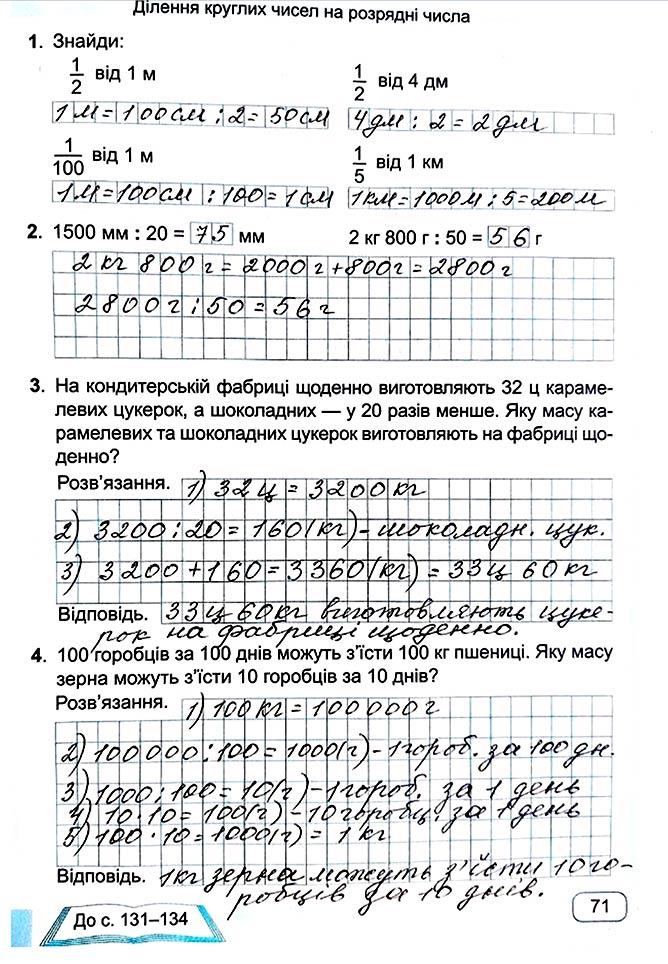 Ділення круглих чисел на розрядні числа
1. Знайди:
1/2 від 1 м
1/2 від 4 дм
1м=100см:2=50см
4дм:2=2дм
1/100 від 1 м
1/5 від 1 км
1м=100см:100=1см
1км=1000м:5=200м
2. 1500 мм : 20 = 75 мм
2 кг 800 г : 50 = 56 г
2 кг 800 г = 2000 г + 800 г = 2800 г
2800 г : 50 = 56 г
3. На кондитерській фабриці щоденно виготовляють 32 ц караме-
левих цукерок, а шоколадних — у 20 разів менше. Яку масу ка-
рамелевих та шоколадних цукерок виготовляють на фабриці що-
денно?
Розв'язання. 1) 32 ц = 3200 кг
2) 3200 : 20 = 160 (кг) - шоколадн. цук.
3) 3200 + 160 = 3360 (кг) = 33 ц 60 кг
Відповідь. 33 ц 60 кг виготовляють цуке-
рок на фабриці щоденно.
4. 100 горобців за 100 днів можуть з'їсти 100 кг пшениці. Яку масу
зерна можуть з'їсти 10 горобців за 10 днів?
Розв'язання. 1) 100 кг = 100 000 г
2) 100 000 : 100 = 1000 (г) - 1 гороб. за 100 дн.
3) 1000 : 100 = 10 (г) - 1 гороб. за 1 день
4) 10 · 10 = 100 (г) - 10 горобц. за 1 день
5) 100 · 10 = 1000 (г) = 1 кг
Відповідь. 1 кг зерна можуть з'їсти 10 го-
робців за 10 днів.
До с. 131–134
71